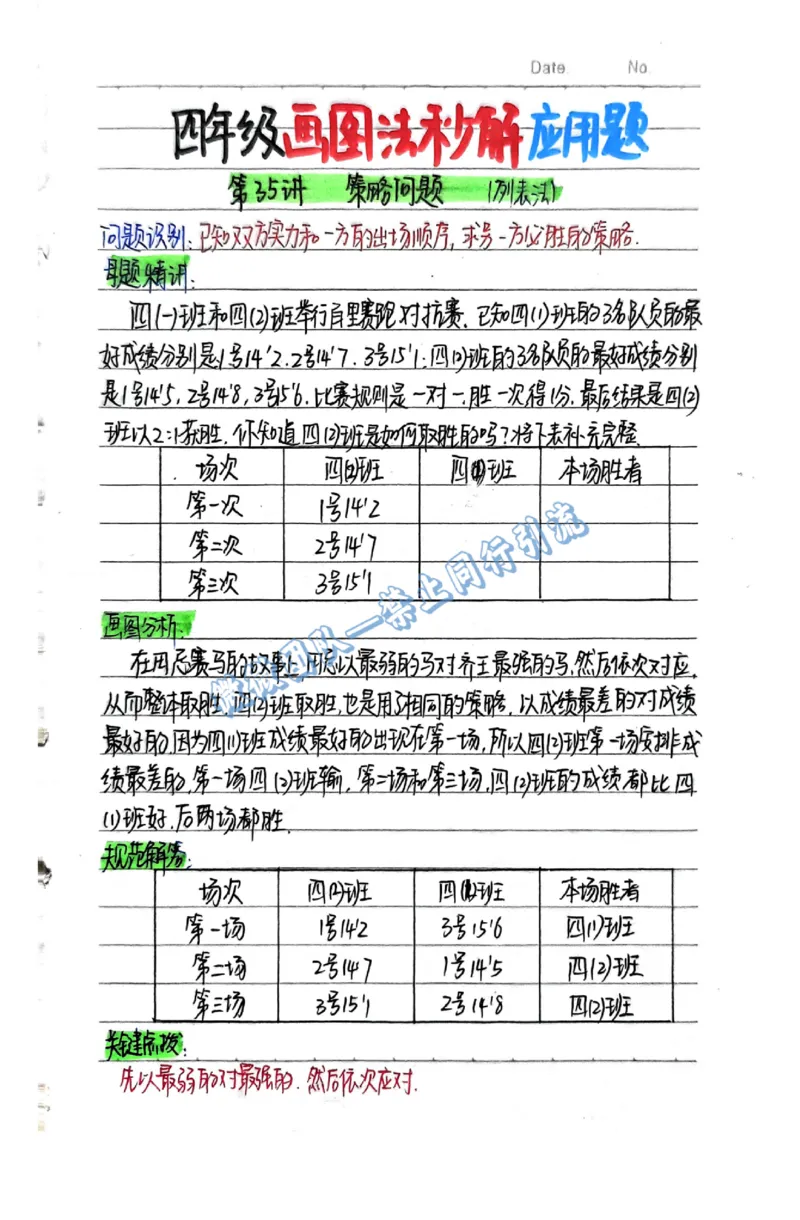 Date. No.
四年级画图法秒解应用题
第35讲 策略问题 (列表法)
问题识别:已知双方实力和一方的出场顺序,求另一方必胜的策略.
母题精讲:
四(一)班和四(2)班举行百里赛跑对抗赛.已知四(1)班的3名队员的最
好成绩分别是1号14'2.2号14'7.3号15'1;四(2)班的3名队员的最好成绩分别
是1号14'5,2号14'8,3号15'6.比赛规则是一对一.胜一次得1分.最后结果是四(2)
班以2:1获胜.你知道四(2)班是如何取胜的吗?将下表补充完整.
场次 四(2)班 四(1)班 本场胜者
第一次 1号14'2
第二次 2号14'7
第三次 3号15'1
画图分析:
在田忌赛马的故事上,田忌以最弱的马对齐王最强的马,然后依次对应.
从而整体取胜.四(2)班取胜,也是用了相同的策略.以成绩最差的对成绩
最好的.因为四(1)班成绩最好的出现在第一场,所以四(2)班第一场安排成
绩最差的,第一场四(2)班输.第二场和第三场.四(2)班的成绩都比四
(1)班好.后两场都胜.
规范解答:
场次 四(2)班 四(2)班 本场胜者
第一场 1号14'2 3号15'6 四(1)班
第二场 2号14'7 1号14'5 四(2)班
第三场 3号15'1 2号14'8 四(2)班
关键点拨:
先以最弱的对最强的.然后依次应对.
微微团队—禁止同行引流